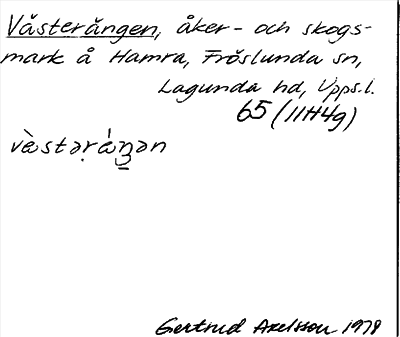 Västerängen, åker- och skogs-
mark å Hamra, Fröslunda sn,
Lagunda hd, Upps.l.
65 (11H4g)
Gertrud Axelsson 1978